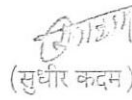 (सुधीर कदम)